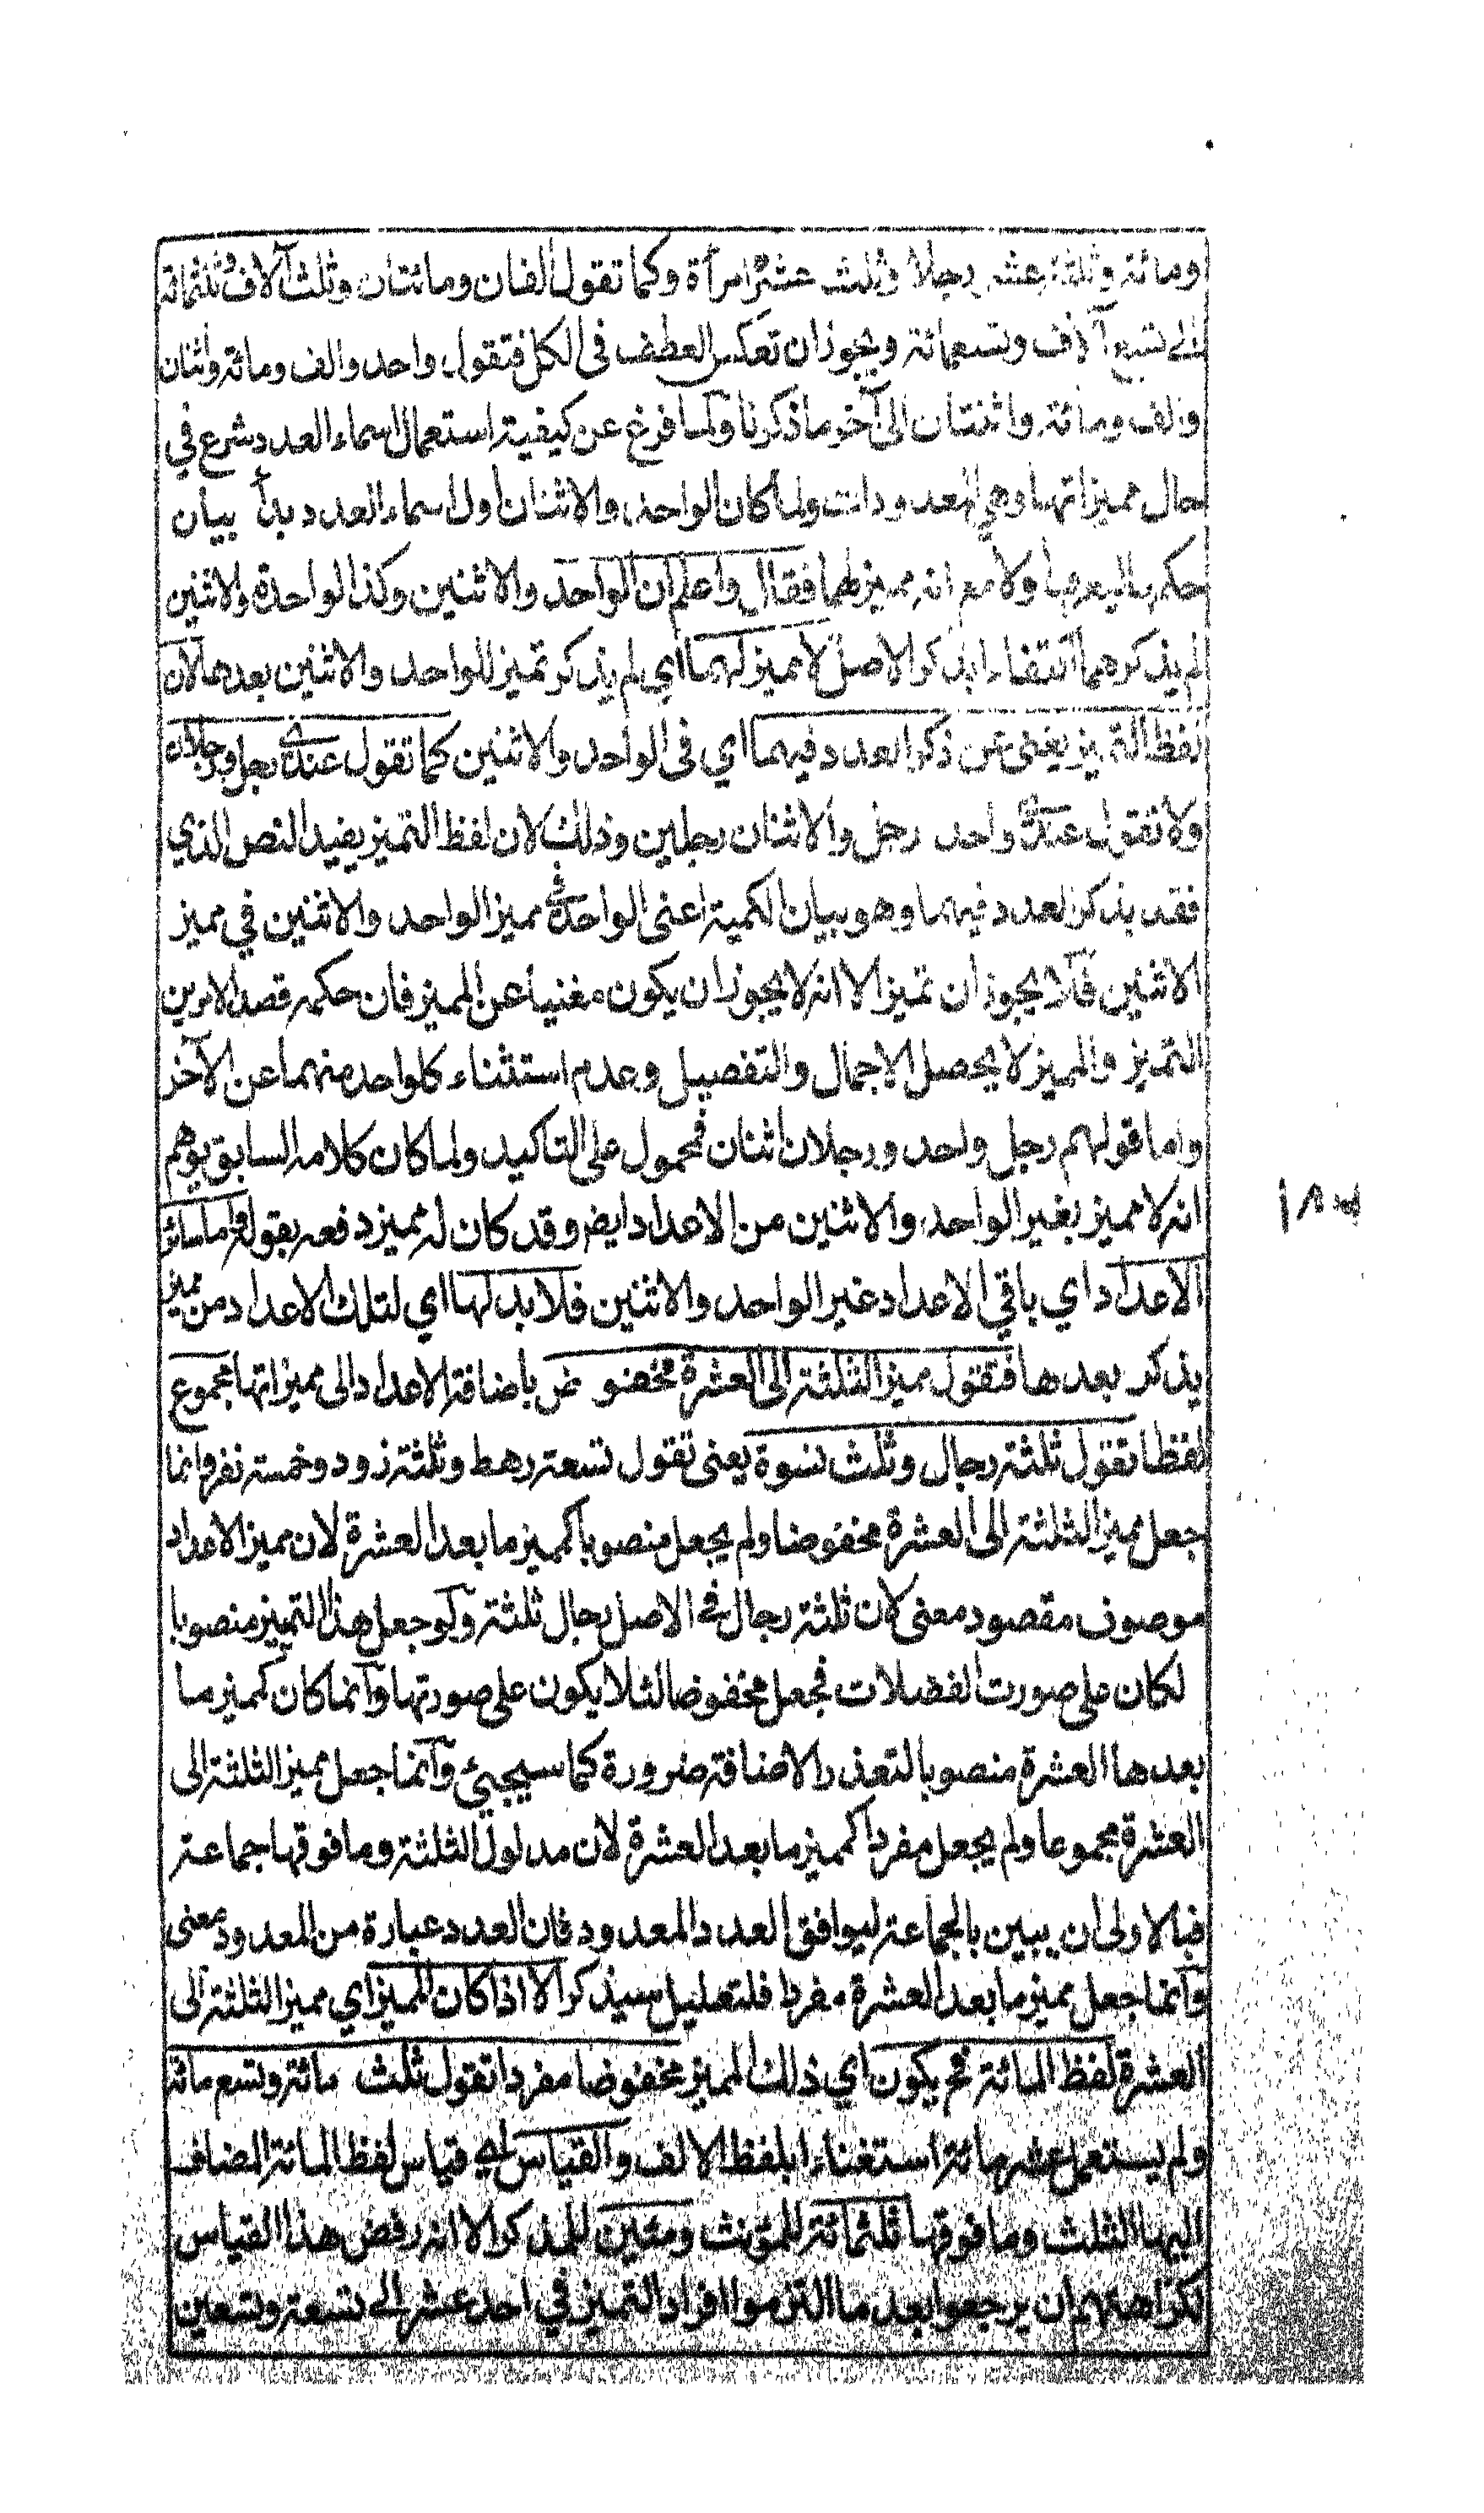 ومائة وثلثة عشر رجلا وثلث عشرة امرأة وكما تقول الفان ومائتان وثلث آلاف وثلثمائة
الى تسع آلاف وتسعمائة ويجوز ان تعكس العطف فى الكل فتقول واحد والف ومائة واثنان
والف ومائة واثنتان الى آخر ما ذكرنا ولما فرغ عن كيفية استعمال اسماء العدد شرع في
حال مميزاتها وهي المعدودات ولما كان الواحد والاثنان اول اسماء العدد بدأ بيان
حكمهما اولا مع انه مميز لهما فقال واعلم ان الواحد والاثنين وكذا الواحدة والاثنين
لم يذكرهما انتفاء بذكر الاصل لا مميز لهما اي لم يذكر تميز للواحد والاثنين بعدهما لان
لفظ التميز يغنى عن ذكر العدد فيهما اي فى الواحد والاثنين كما تقول عندى رجل ورجلان
ولا تقول عندى واحد رجل والاثنان رجلين وذلك لان لفظ التميز يفيد النص الذي
فقد بذكر العدد فيهما وهو بيان الكمية اعنى الواحدة في مميز الواحد والاثنين في مميز
الاثنين فلا يجوز ان تميز الا انه لا يجوز ان يكون مغنيا عن المميز فان حكمه قصد الامرين
التميز والمميز لا يحصل الاجمال والتفصيل وعدم استثناء كلواحد منهما عن الآخر
واما قولهم رجل واحد ورجلان اثنان فمحمول على التاكيد ولما كان كلامه السابق يوهم
انه لا مميز بغير الواحد والاثنين من الاعداد ايض وقد كان له مميز دفعه بقوله واما سائر
الاعداد اي باقي الاعداد غير الواحد والاثنين فلا بد لها اي لتلك الاعداد من مميز
يذكر بعدها فتقول مميز الثلثة الى العشرة مخفوض باضافة الاعداد الى مميزاتها مجموع
لفظا تقول ثلثة رجال وثلث نسوة يعنى تقول تسعة رهط وثلثة زود وخمسة نفر وانما
جعل مميز الثلثة الى العشرة مخفوضا ولم يجعل منصوبا كمميز ما بعد العشرة لان مميز الاعداد
موصوف مقصود معنى لان ثلثة رجال في الاصل رجال ثلثة ولو جعل هذا التميز منصوبا
لكان على صورت الفضلات فجعل مخفوضا لئلا يكون على صورتها وانما كان كمميز ما
بعدها العشرة منصوبا لتعذر الاضافة ضرورة كما سيجيئ وانما جعل مميز الثلثة الى
العشرة مجموعا ولم يجعل مفردا كمميز ما بعد العشرة لان مدلول الثلثة وما فوقها جماعة
فبالاولى ان يبين بالجماعة ليوافق العدد المعدود فان العدد عبارة من المعدود معنى
وانما جعل مميز ما بعد العشرة مفردا فلتعليل سيذكر الا اذا كان المميز اي مميز الثلثة الى
العشرة لفظ المائة فح يكون اي ذلك المميز مخفوضا مفردا تقول ثلث مائة وتسع مائة
ولم يستعمل عشر مائة استغناء بلفظ الالف والقياس اي قياس لفظ المائة المضاف
اليها الثلث وما فوقها ثلثمائة للمؤنث ومئين للمذكر الا انه رفض هذا القياس
لكراهتهم ان يرجعوا بعد ما التزموا افراد التميز في احد عشر الى تسعة وتسعين